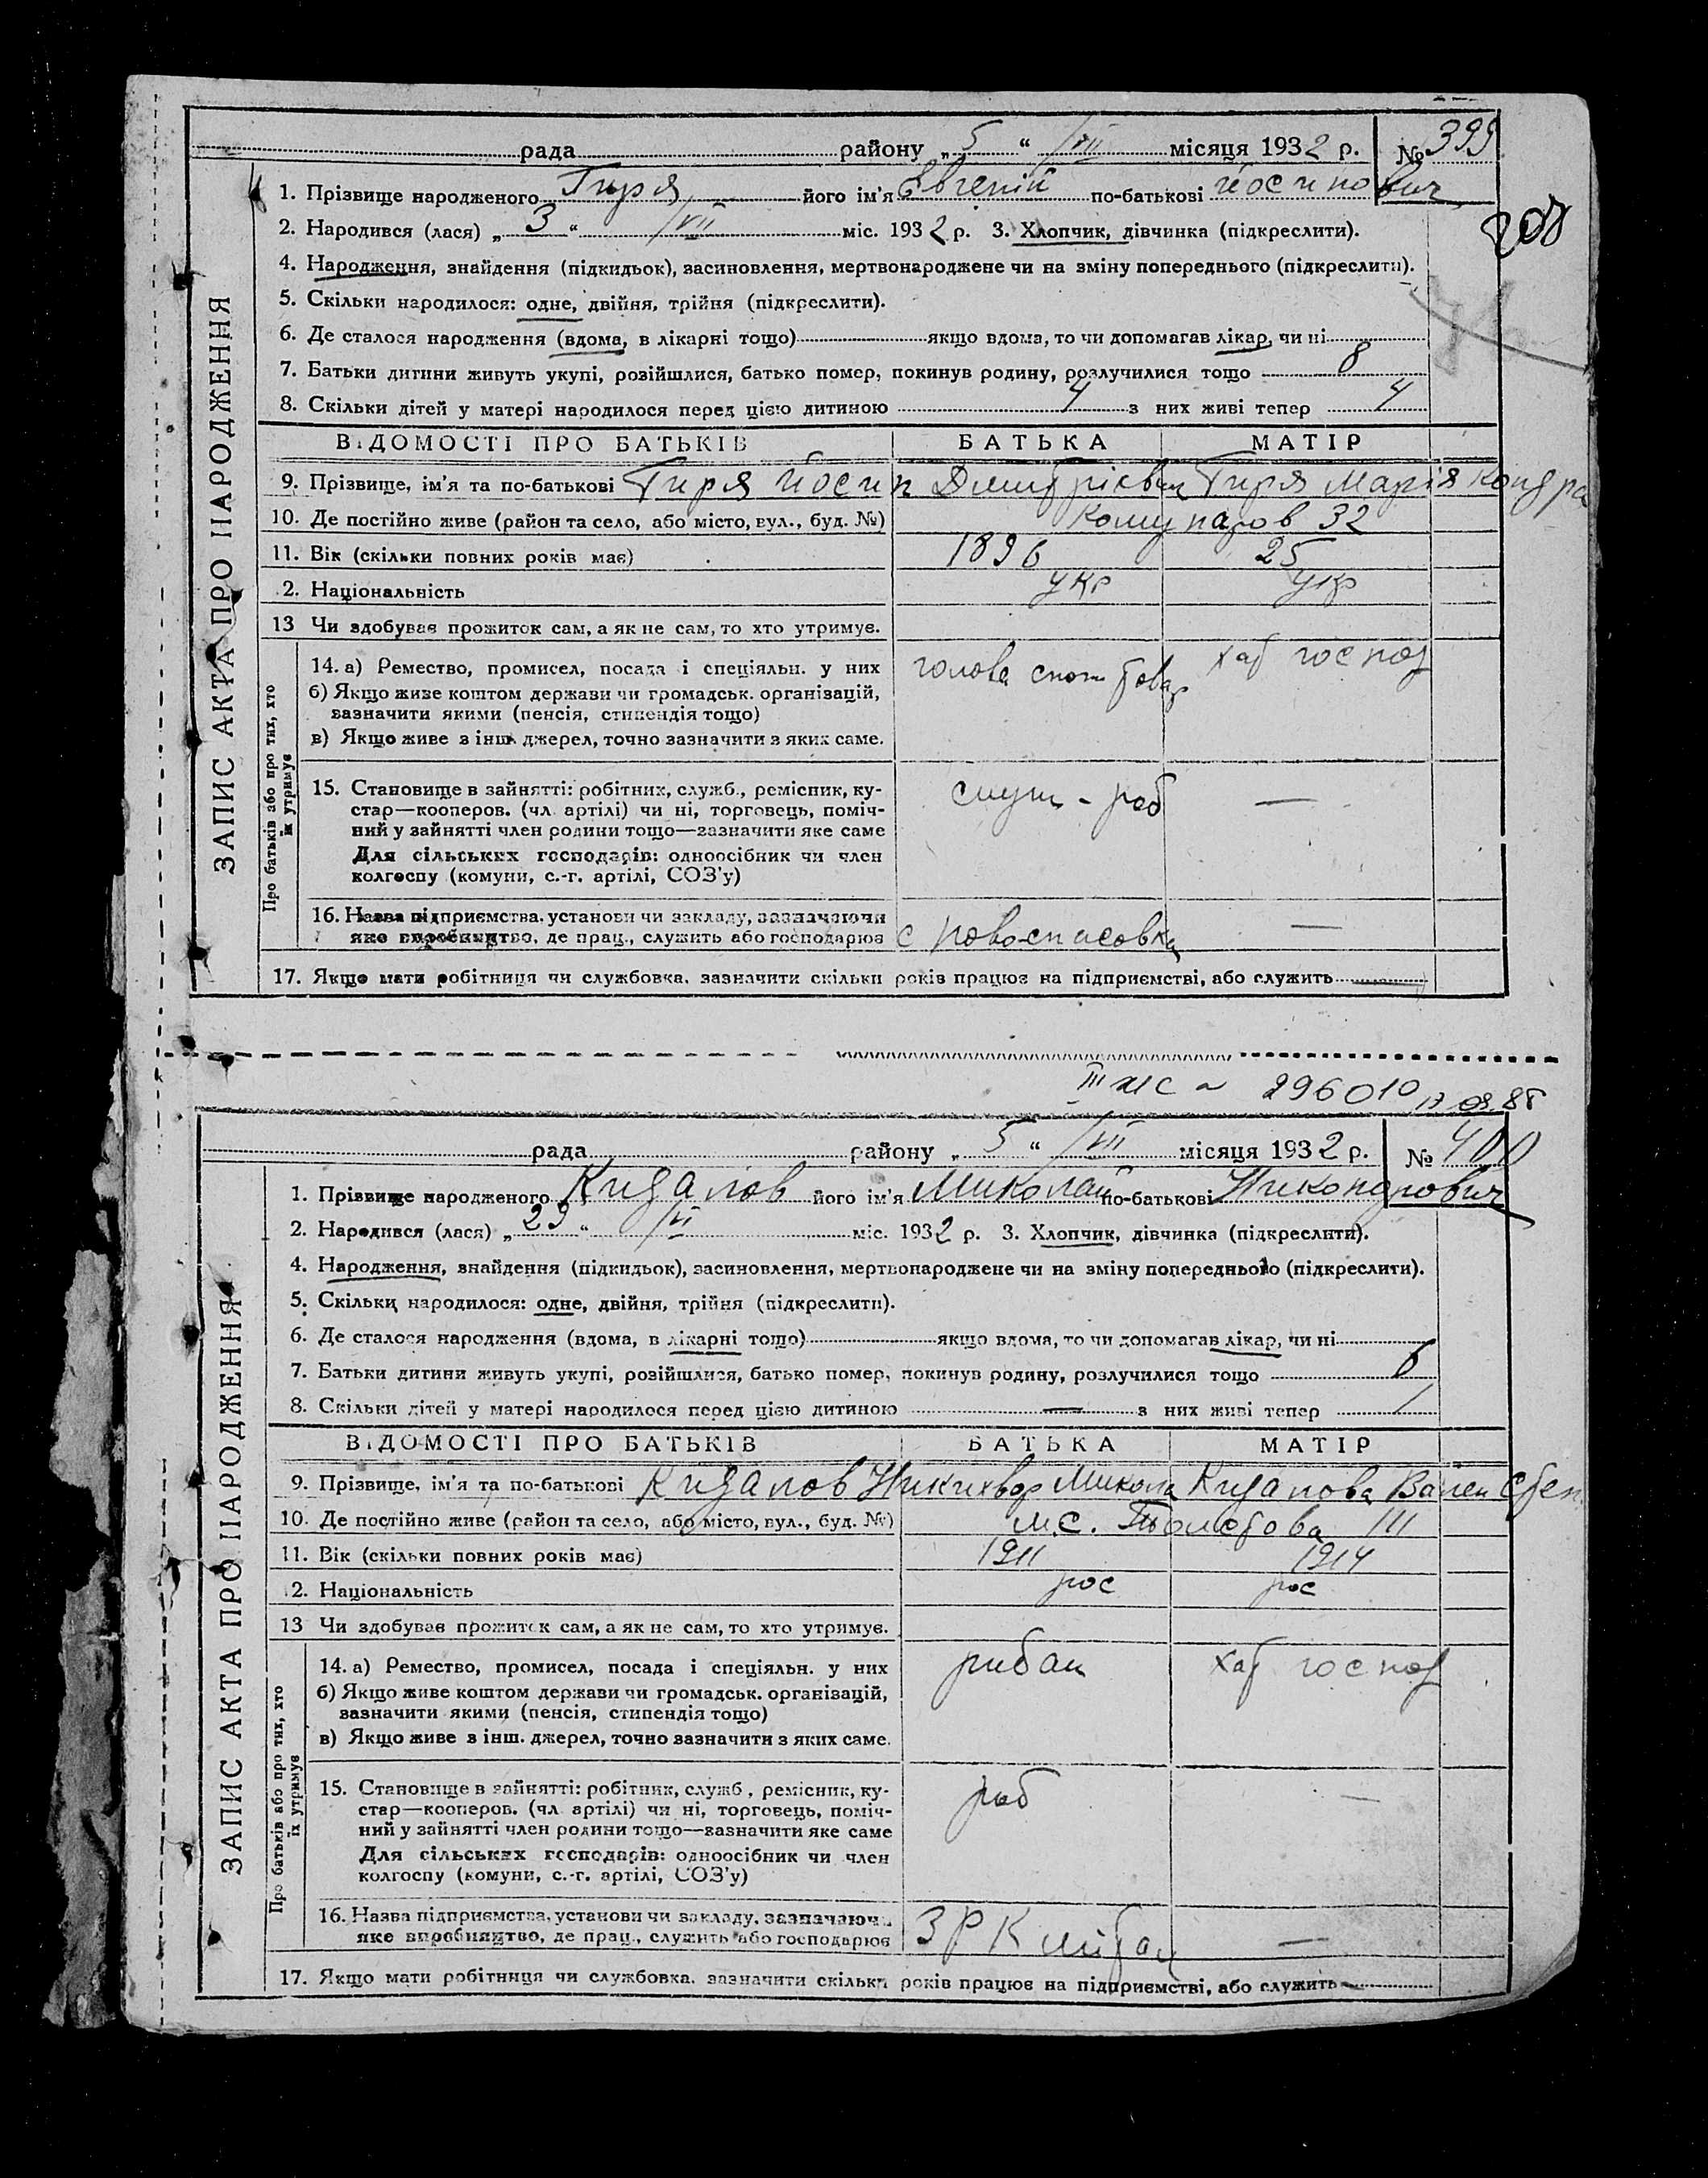 рада району „ 5 “ /VII місяця 1932 р. № 399
1. Прізвище народженого Гиря його ім'я Євгеній по-батькові йосипович
2. Народився (лася) „ 3 “ /VII міс. 1932 р. 3. Хлопчик, дівчинка (підкреслити).
208
4. Народження, знайдення (підкидьок), засиновлення, мертвонароджене чи на зміну попереднього (підкреслити).
5. Скільки народилося: одне, двійня, трійня (підкреслити).
6. Де сталося народження (вдома, в лікарні тощо) якщо вдома, то чи допомагав лікар, чи ні
7. Батьки дитини живуть укупі, розійшлися, батько помер, покинув родину, розлучилися тощо 8
8. Скільки дітей у матері народилося перед цією дитиною 4 з них живі тепер 4
ЗАПИС АКТА ПРО НАРОДЖЕННЯ
ВІДОМОСТІ ПРО БАТЬКІВ БАТЬКА МАТІР
9. Прізвище, ім'я та по-батькові Гиря йосип Дмитрієвич Гиря Марія Кондра
10. Де постійно живе (район та село, або місто, вул., буд. №) Комунаров 32
11. Вік (скільки повних років має) 1896 25
2. Національність укр укр
13 Чи здобуває прожиток сам, а як не сам, то хто утримує.
Про батьків або про тих, хто їх утримує
14. а) Ремество, промисел, посада і спеціяльн. у них голова спож товар хат господ
б) Якщо живе коштом держави чи громадськ. організацій,
зазначити якими (пенсія, стипендія тощо)
в) Якщо живе з інш. джерел, точно зазначити з яких саме.
15. Становище в зайнятті: робітник, служб., ремісник, ку-
стар—кооперов. (чл. артілі) чи ні, торговець, поміч-
ний у зайнятті член родини тощо—зазначити яке саме
служ - роб —
Для сільських господарів: одноосібник чи член
колгоспу (комуни, с.-г. артілі, СОЗ'у)
16. Назва підприємства, установи чи закладу, зазначаючи
яке виробництво, де прац., служить або господарює с Новоспасовка —
17. Якщо мати робітниця чи службовка, зазначити скільки років працює на підприємстві, або служить —
296010
рада району „ 5 “ /VII місяця 1932 р. № 400
1. Прізвище народженого Кидалов його ім'я Миколай по-батькові Никондрович
2. Народився (лася) „ 29 “ /VI міс. 1932 р. 3. Хлопчик, дівчинка (підкреслити).
4. Народження, знайдення (підкидьок), засиновлення, мертвонароджене чи на зміну попереднього (підкреслити).
5. Скільки народилося: одне, двійня, трійня (підкреслити).
6. Де сталося народження (вдома, в лікарні тощо) якщо вдома, то чи допомагав лікар, чи ні
7. Батьки дитини живуть укупі, розійшлися, батько помер, покинув родину, розлучилися тощо 6
8. Скільки дітей у матері народилося перед цією дитиною — з них живі тепер 1
ЗАПИС АКТА ПРО НАРОДЖЕННЯ
ВІДОМОСТІ ПРО БАТЬКІВ БАТЬКА МАТІР
9. Прізвище, ім'я та по-батькові Кидалов Микола Кидалова Вален Степ
10. Де постійно живе (район та село, або місто, вул., буд. №) м.с. Толстова 111
11. Вік (скільки повних років має) 1911 1914
2. Національність рос рос
13 Чи здобуває прожиток сам, а як не сам, то хто утримує.
Про батьків або про тих, хто їх утримує
14. а) Ремество, промисел, посада і спеціяльн. у них рибак хат господ
б) Якщо живе коштом держави чи громадськ. організацій,
зазначити якими (пенсія, стипендія тощо)
в) Якщо живе з інш. джерел, точно зазначити з яких саме.
15. Становище в зайнятті: робітник, служб., ремісник, ку-
стар—кооперов. (чл. артілі) чи ні, торговець, поміч-
ний у зайнятті член родини тощо—зазначити яке саме
роб —
Для сільських господарів: одноосібник чи член
колгоспу (комуни, с.-г. артілі, СОЗ'у)
16. Назва підприємства, установи чи закладу, зазначаючи
яке виробництво, де прац., служить або господарює ЗРК —
17. Якщо мати робітниця чи службовка, зазначити скільки років працює на підприємстві, або служить